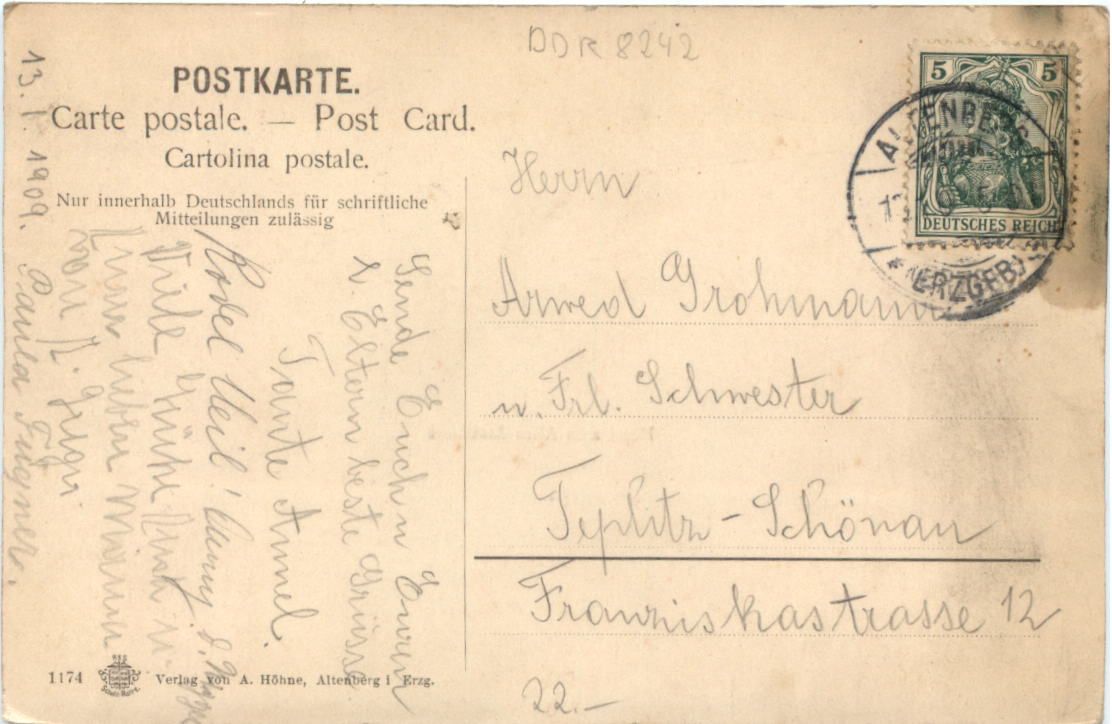 DDR 8242
POSTKARTE.
Carte postale. — Post Card.
Cartolina postale.
Nur innerhalb Deutschlands für schriftliche
Mitteilungen zulässig
5 5
DEUTSCHES REICH
ALTENBERG
* (ERZGEB)
Herrn
Arwed Grohmann
u. Frl. Schwester
Teplitz-Schönau
Franziskastrasse 12
22.—
Sende Euch u Euren
l. Eltern beste Grüsse
Tante Annel.
Rodel Heil!
Viele Grüße
von
Paula
13. 1. 1909.
1174
Verlag von A. Höhne, Altenberg i Erzg.